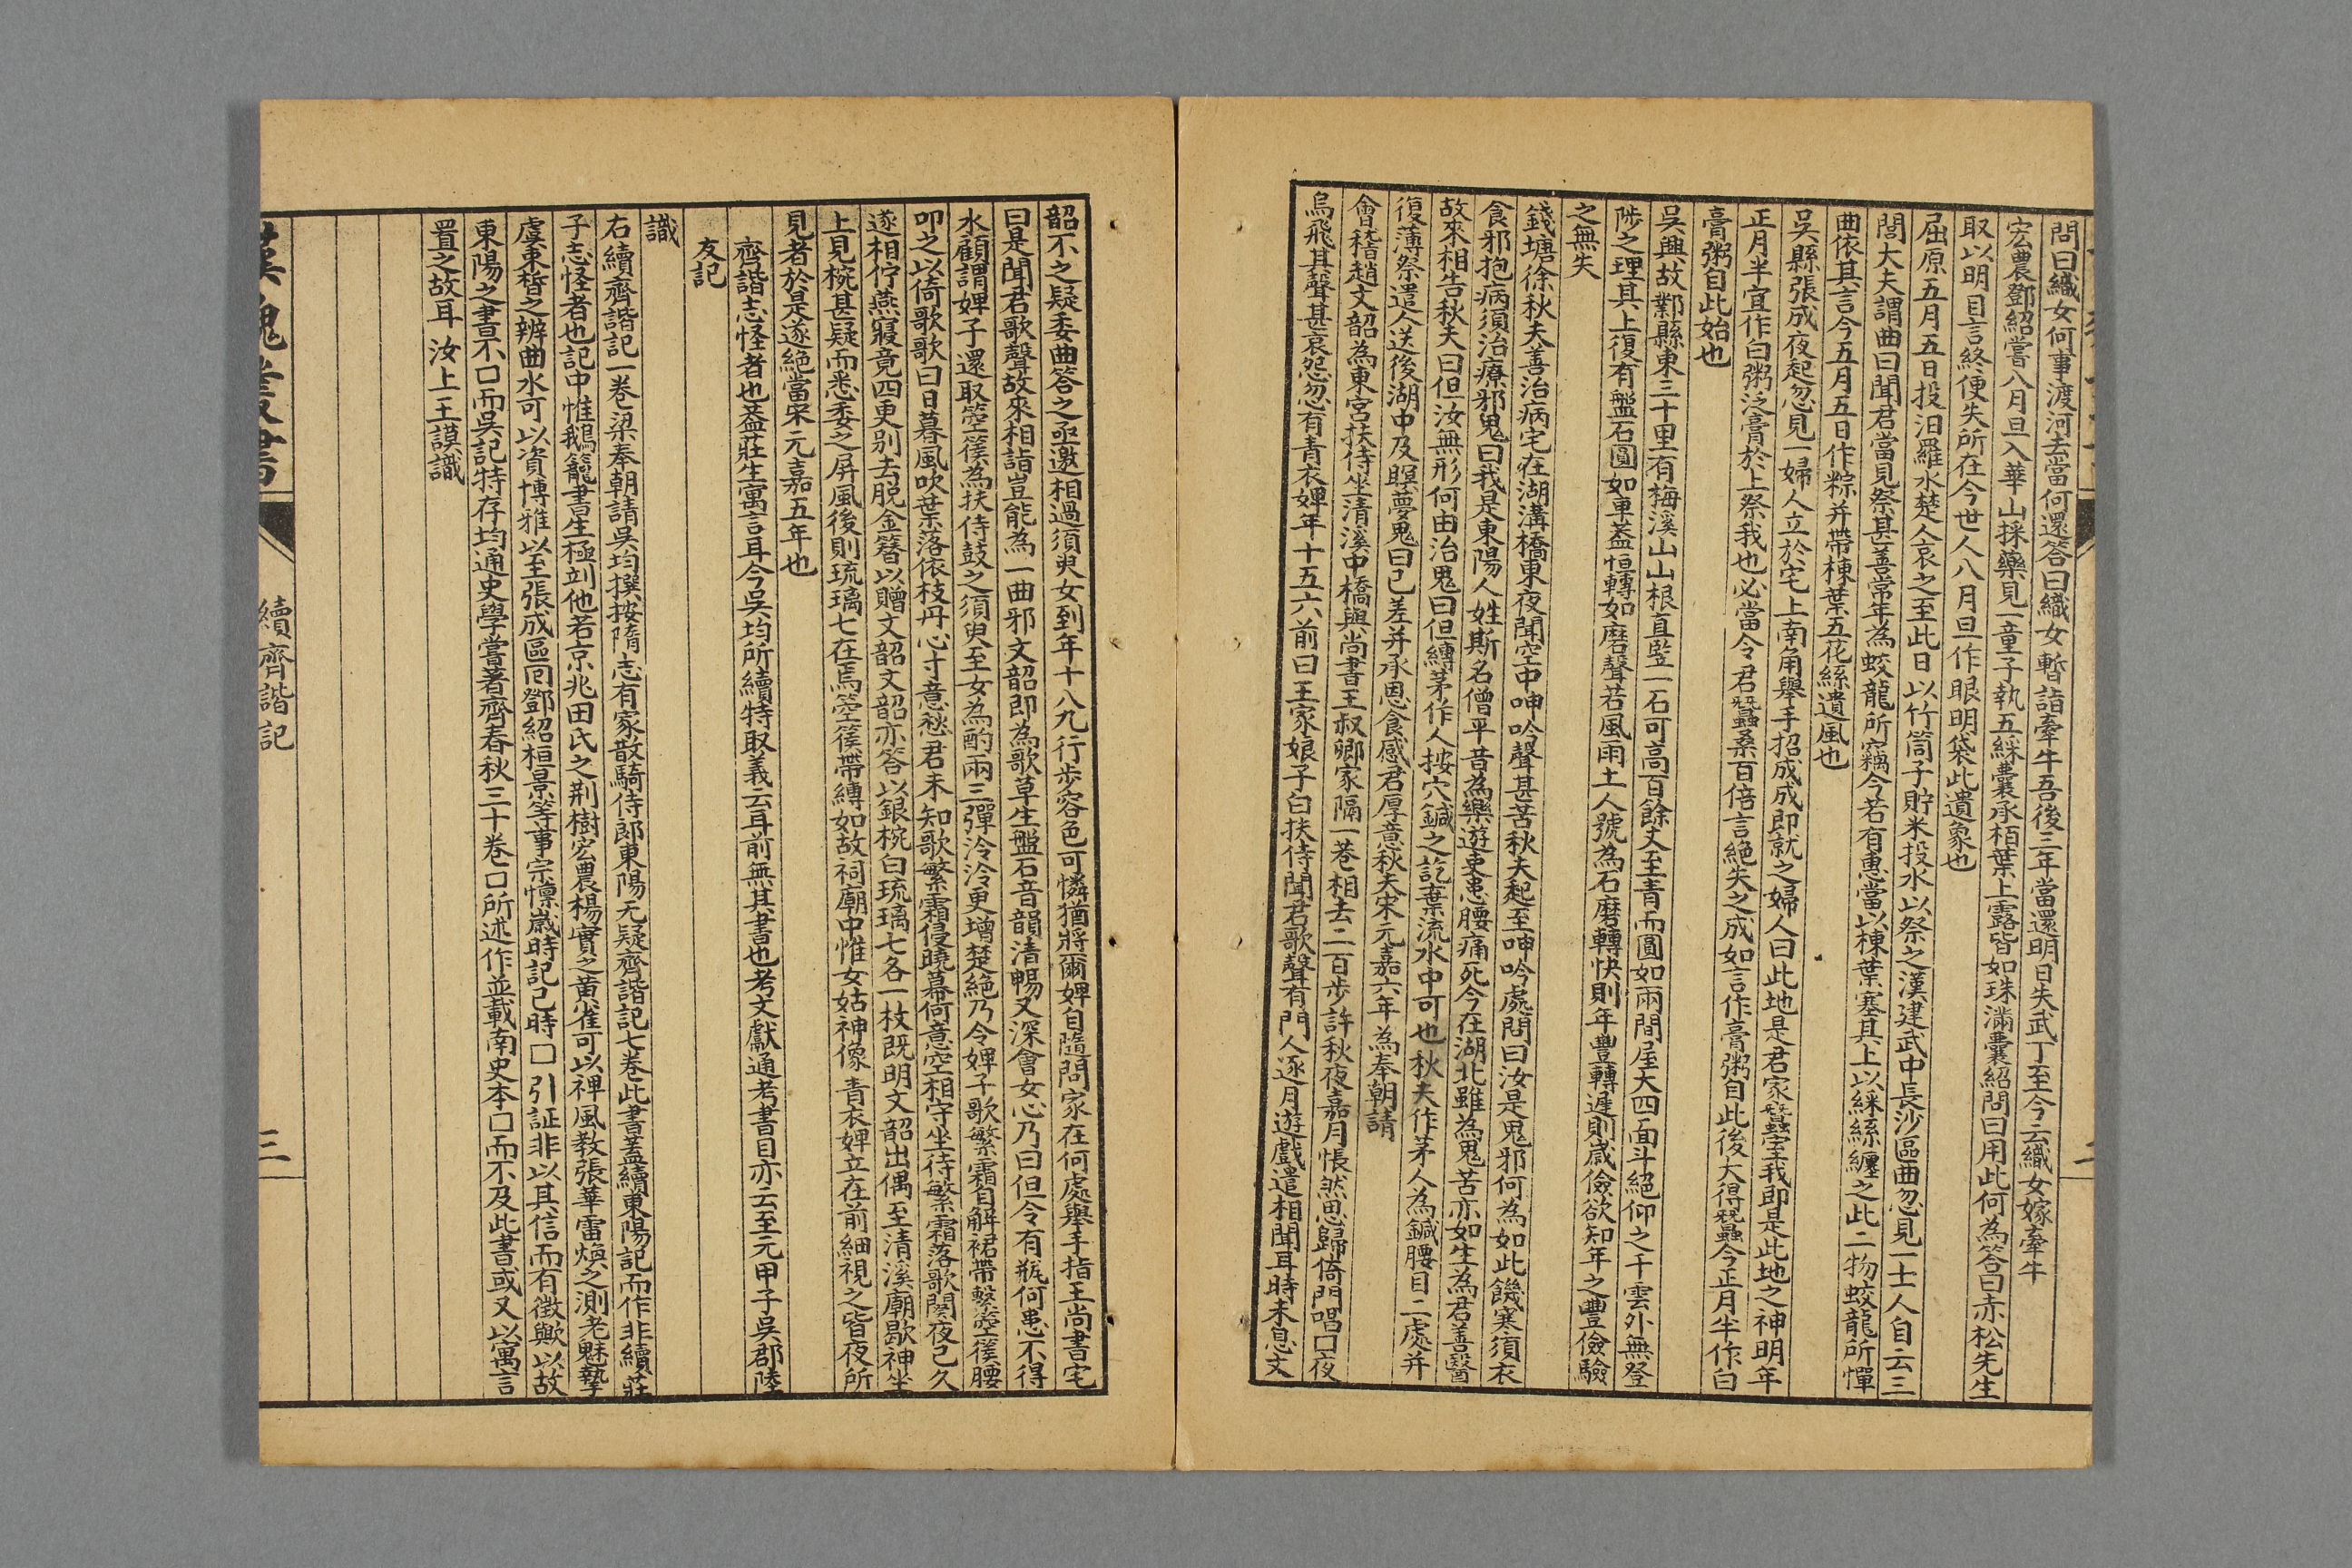 問曰織女何事渡河去當何還答曰織女暫詣牽牛吾後三年當還明日失武丁至今云織女嫁牽牛
宏農鄧紹嘗八月旦入華山採藥見一童子執五綵囊承栢葉上露皆如珠滿囊紹問曰用此何為答曰赤松先生
取以明目言終便失所在今世人八月旦作眼明袋此遺象也
屈原五月五日投汨羅水楚人哀之至此日以竹筒子貯米投水以祭之漢建武中長沙區曲忽見一士人自云三
閭大夫謂曲曰聞君當見祭甚善常年為蛟龍所竊今若有惠當以楝葉塞其上以綵絲纏之此二物蛟龍所憚
曲依其言今五月五日作粽并帶楝葉五花絲遺風也
吳縣張成夜起忽見一婦人立於宅上南角舉手招成成即就之婦人曰此地是君家蠶室我即是此地之神明年
正月半宜作白粥泛膏於上祭我也必當令君蠶桑百倍言絕失之成如言作膏粥自此後大得蠶今正月半作白
膏粥自此始也
吳興故鄣縣東三十里有梅溪山山根直竪一石可高百餘丈至青而圓如兩間屋大四面斗絕仰之干雲外無登
陟之理其上復有盤石圓如車蓋恒轉如磨聲若風雨土人號為石磨轉快則年豐轉遲則歲儉欲知年之豐儉驗
之無失
錢塘徐秋夫善治病宅在湖溝橋東夜聞空中呻吟聲甚苦秋夫起至呻吟處問曰汝是鬼邪何為如此饑寒須衣
食邪抱病須治療邪鬼曰我是東陽人姓斯名僧平昔為樂遊吏患腰痛死今在湖北雖為鬼苦亦如生為君善醫
故來相告秋夫曰但汝無形何由治鬼曰但縛茅作人按穴鍼之訖棄流水中可也秋夫作茅人為鍼腰目二處并
復薄祭遣人送後湖中及瞑夢鬼曰已差并承恩食感君厚意秋夫宋元嘉六年為奉朝請
會稽趙文韶為東宮扶侍坐清溪中橋與尚書王叔卿家隔一巷相去二百步許秋夜嘉月悵然思歸倚門唱口夜
烏飛其聲甚哀怨忽有青衣婢年十五六前曰王家娘子白扶侍聞君歌聲有門人逐月遊戲遣相聞耳時未息文
韶不之疑委曲答之亟邀相過須臾女到年十八九行步容色可憐猶將爾婢自隨問家在何處舉手指王尚書宅
曰是聞君歌聲故來相詣豈能為一曲邪文韶即為歌草生盤石音韻清暢又深會女心乃曰但令有瓶何患不得
水顧謂婢子還取箜篌為扶侍鼓之須臾至女為酌兩三彈泠泠更增楚絕乃令婢子歌繁霜自解裙帶繫箜篌腰
叩之以倚歌歌曰日暮風吹葉落依枝丹心寸意愁君未知歌繁霜侵曉幕何意空相守坐待繁霜落歌闋夜已久
遂相佇燕寢竟四更別去脫金簪以贈文韶文韶亦答以銀椀白琉璃七各一枚既明文韶出偶至清溪廟歇神坐
上見椀甚疑而悉委之屏風後則琉璃七在焉箜篌帶縛如故祠廟中惟女姑神像青衣婢立在前細視之皆夜所
見者於是遂絕當宋元嘉五年也
齊諧志怪者也蓋莊生寓言耳今吳均所續特取義云耳前無其書也考文獻通考書目亦云至元甲子吳郡陸
友記
識
右續齊諧記一卷梁奉朝請吳均撰按隋志有家散騎侍郎東陽无疑齊諧記七卷此書蓋續東陽記而作非續莊
子志怪者也記中惟鵝籠書生極刲他若京兆田氏之荆樹宏農楊寶之黃雀可以裨風教張華雷煥之測老魅摯
虞束晳之辨曲水可以資博雅以至張成區回鄧紹桓景等事宗懍歲時記已時囗引証非以其信而有徵歟以故
東陽之書不囗而吳記特存均通史學嘗著齊春秋三十卷囗所述作並載南史本囗而不及此書或又以寓言
置之故耳 汝上王謨識
漢魏叢書
續齊諧記
三